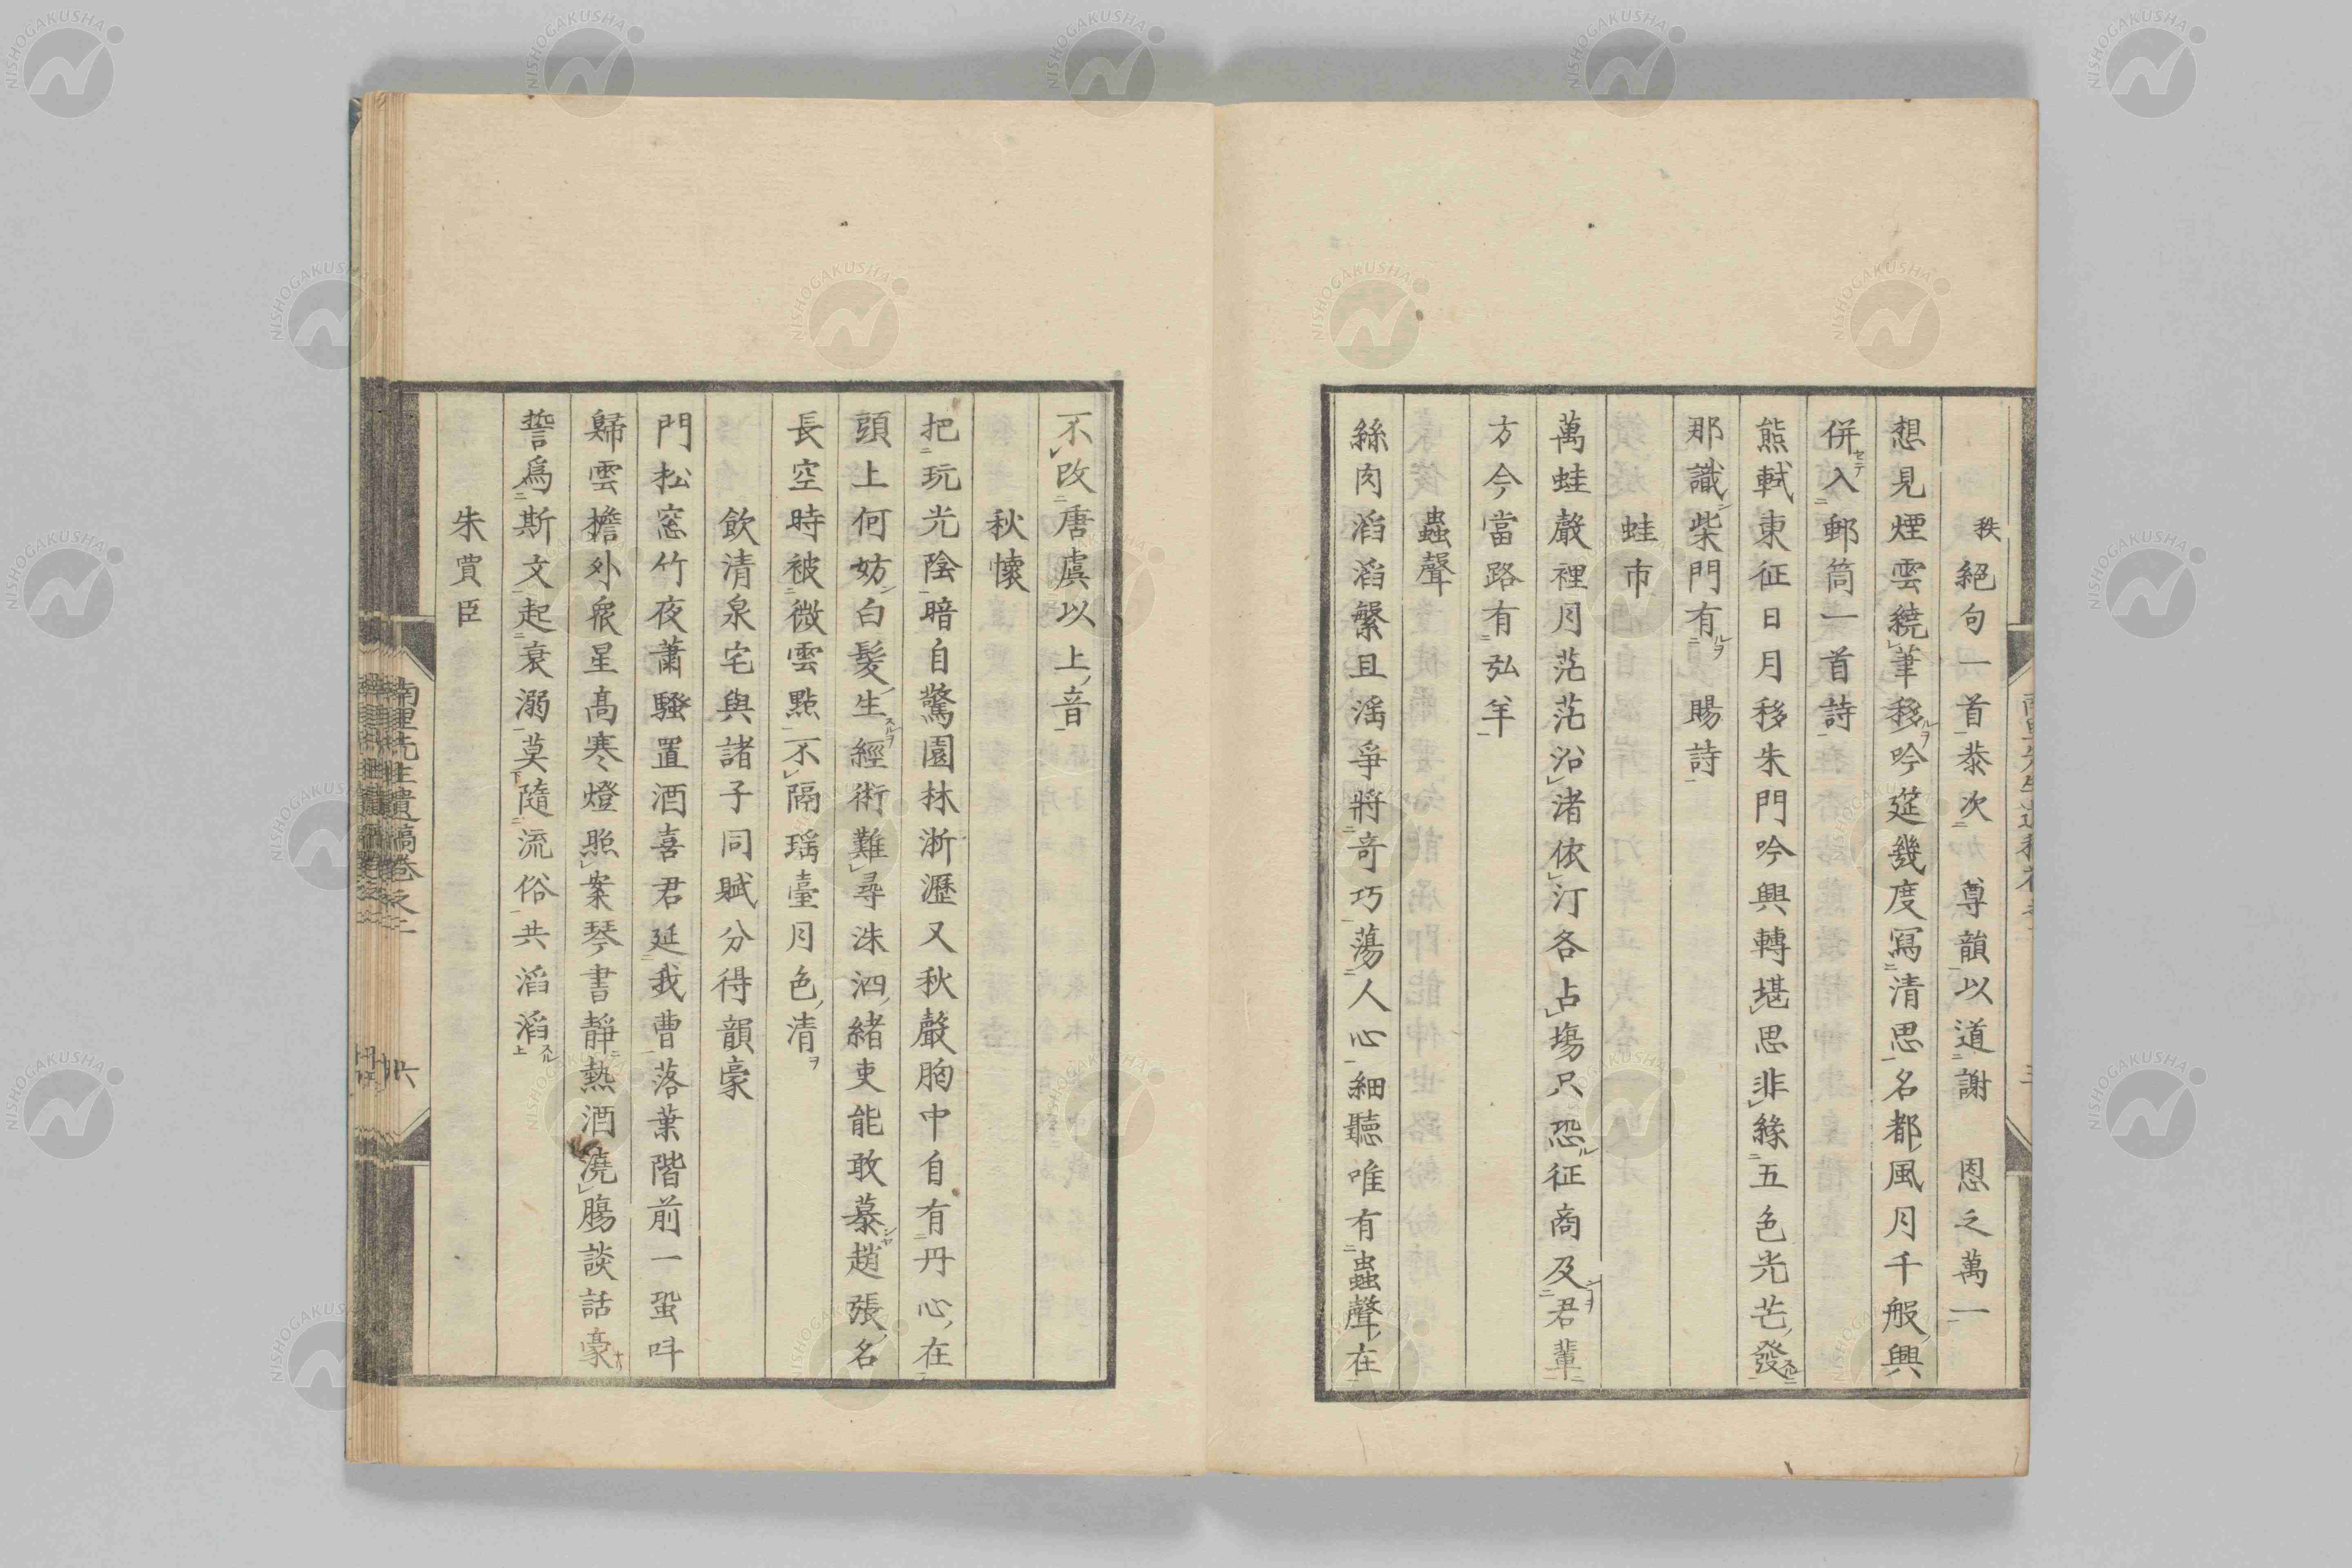 秩絕句一首恭次　尊韻以道謝　恩之萬一
想見煙雲繞筆移吟筵幾度寫清思名都風月千般興
併入郵筒一首詩
熊軾東征日月移朱門吟興轉堪思非緣五色光芒發
那識柴門有　賜詩
蛙市
萬蛙聲裡月茫茫沿渚依汀各占塲只恐征商及君輩
方今當路有弘羊
蟲聲
絲肉滔滔繁且滛爭將奇巧蕩人心細聽唯有蟲聲在
不改唐虞以上音
秋懷
把玩光陰暗自驚園林淅瀝又秋聲胸中自有丹心在
頭上何妨白髮生經術難尋洙泗緒吏能敢慕趙張名
長空時被微雲點不隔瑶臺月色清
飲清泉宅與諸子同賦分得韻豪
門松窓竹夜蕭騷置酒喜君延我曹落葉階前一蛩呌
歸雲擔外衆星高寒燈照案琴書靜熱酒澆腸談話豪
誓爲斯文起衰溺莫隨流俗共滔滔
朱買臣
南里先生遺稿卷之二
六
NISHOGAKUSHA